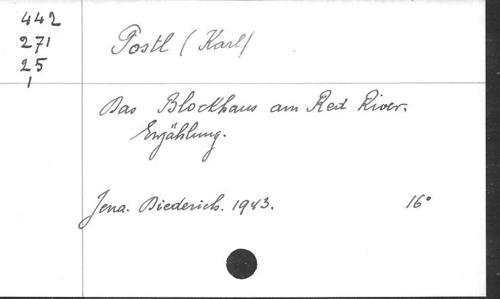 442
271
25
1
Postl (Karl)
Das Blockhaus am Red River.
Erzählung.
Jena. Diederich. 1943. 16°